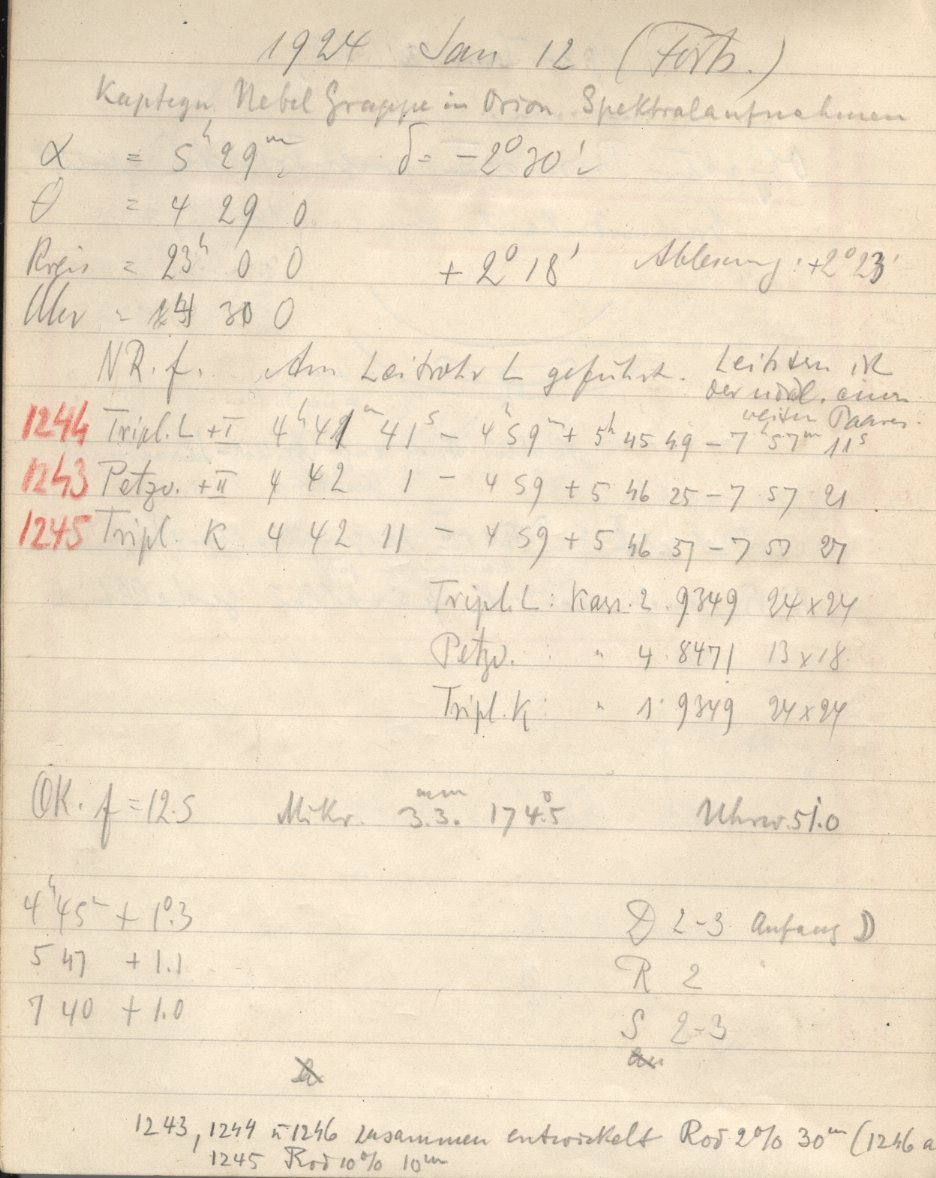 1924 Jan 12 (Forts.)
Kapteyn Nebel Gruppe in Orion. Spektralaufnahmen
α = 5ʰ 29ᵐ, δ = −2° 30'
θ = 4 29 0
Regis = 23ʰ 0 0 +2° 18' Ablesung: +2° 23'
Uhr = 30 0
NR. f. Am Leitrohr L geführt. Leitstern ist
der nördl. eines
weiten Paares.
1244 Tripl. L + I 4ʰ 41ᵐ 41ˢ − 4ʰ 59ᵐ + 5ʰ 45 49 − 7ʰ 57ᵐ 11ˢ
1243 Petzv. + II 4 42 1 − 4 59 + 5 46 25 − 7 57 21
1245 Tripl. K 4 42 11 − 4 59 + 5 46 37 − 7 57 27
Tripl. L : Kass. 2. 9349 24 x 24
Petzv. : " 4. 8471 13 x 18
Tripl. K : " 1. 9349 24 x 24
OK. f = 12.5 Mikr. 3.3. mm 174°.5 Uhrw. 51.0
4ʰ 45ᵐ + 1°.3 D 2-3 Anfang D
5 47 + 1.1 R 2
7 40 + 1.0 S 2-3
1243, 1244 u 1246 zusammen entwickelt Rod 2% 30ᵐ (1246 a
1245 Rod 10% 10ᵐ